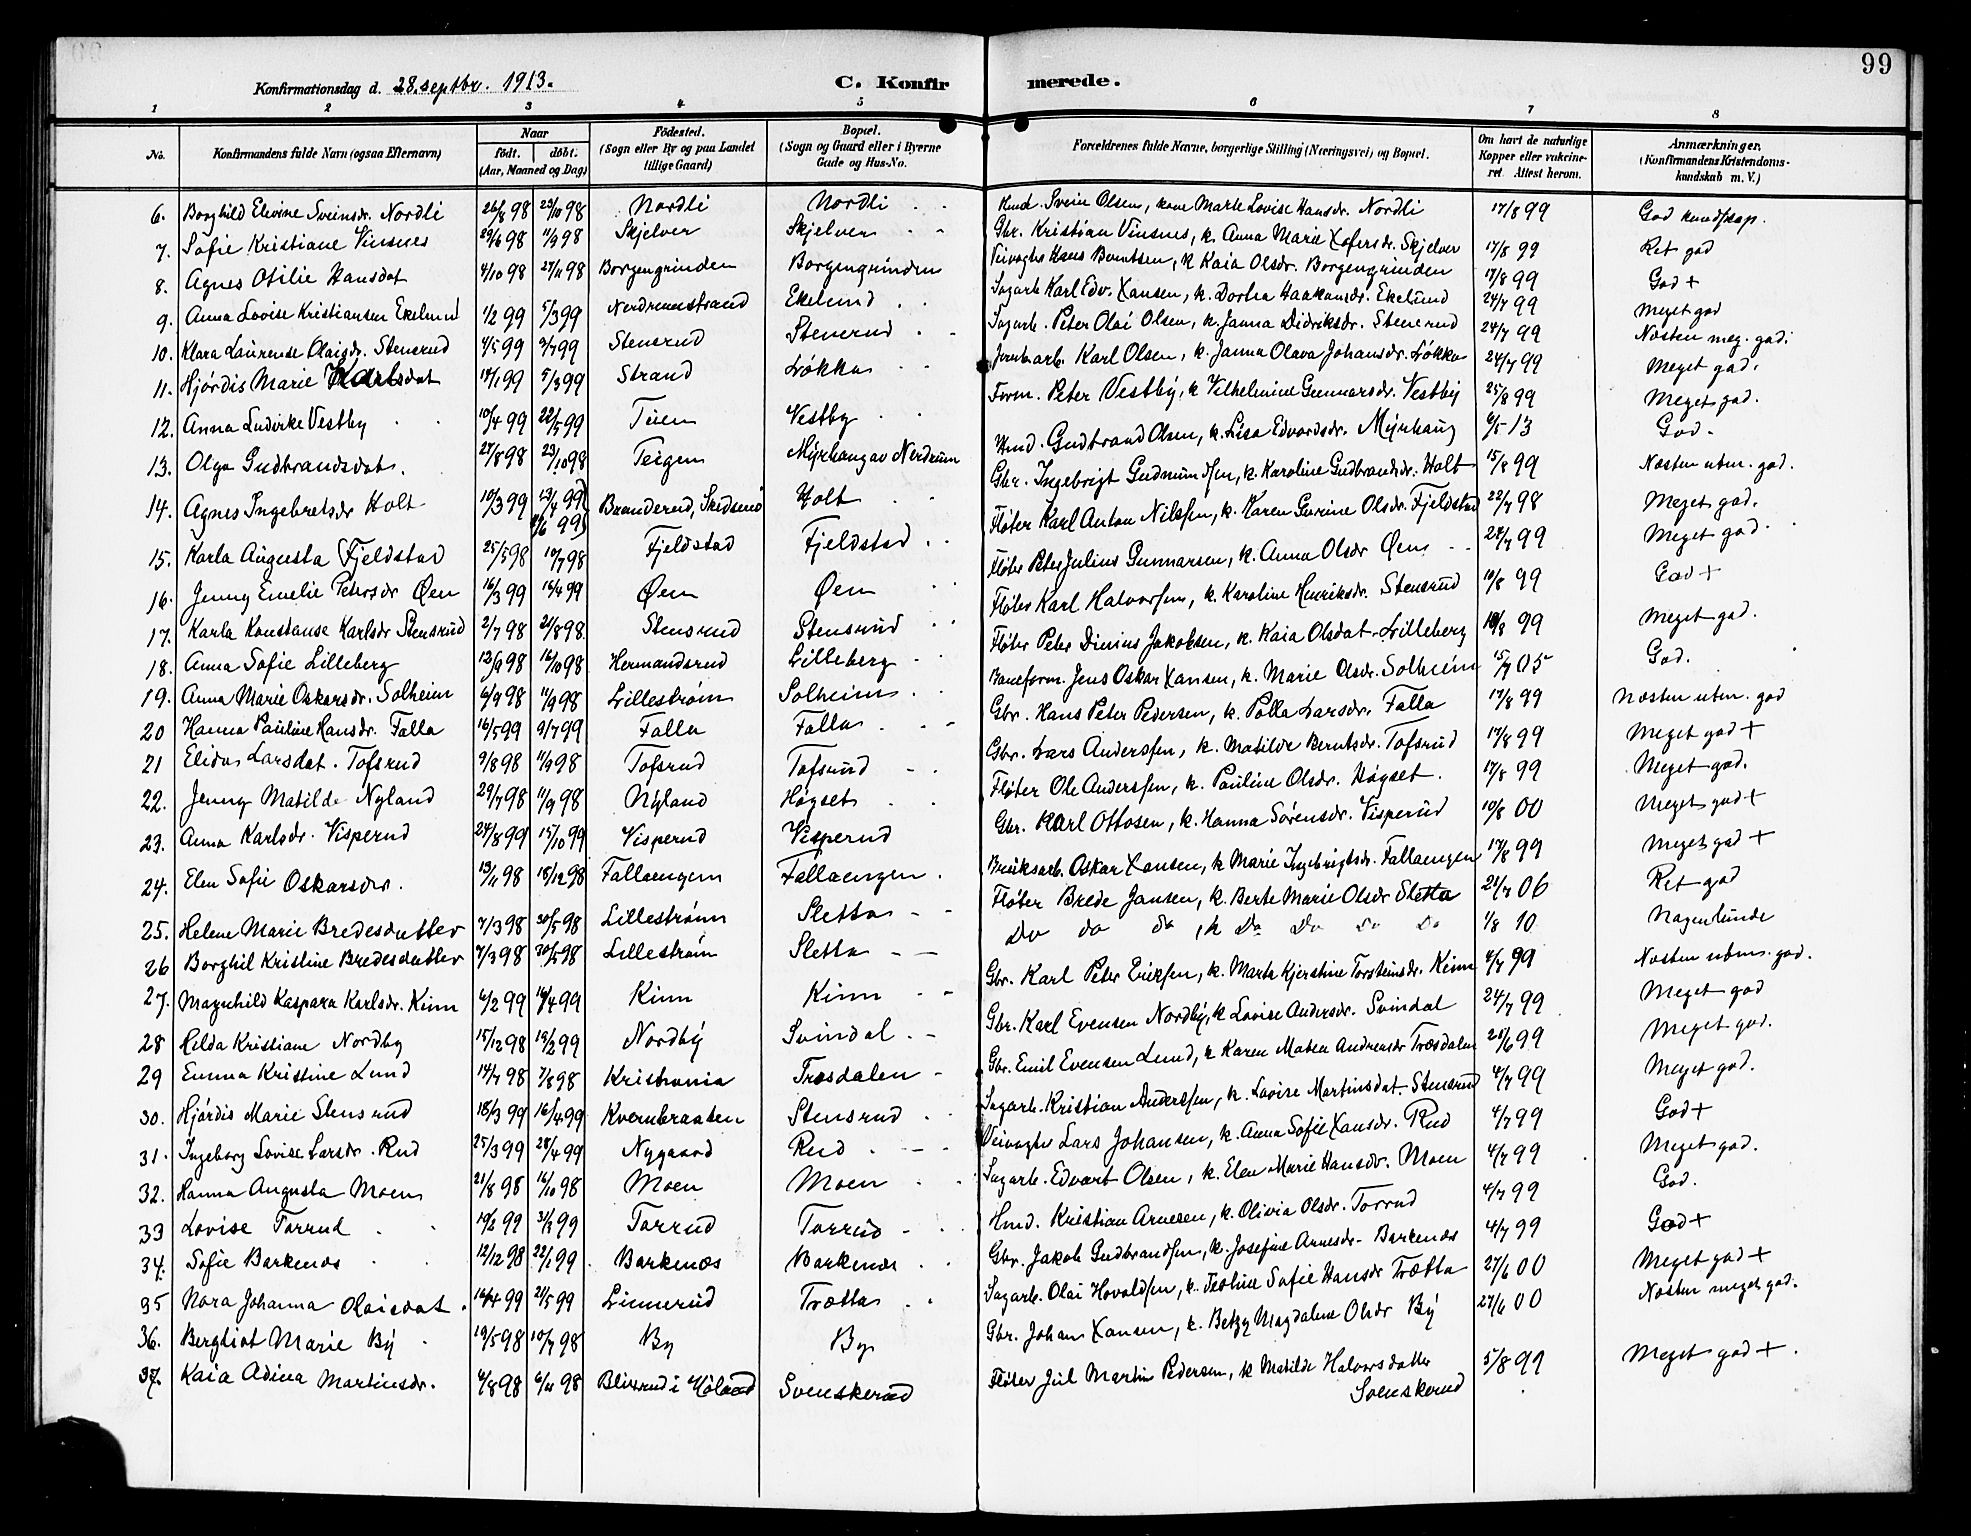 99
Konfirmationsdag d. 28. septbr. 1913.
C. Konfirmerede.
1 2 3 4 5 6 7 8
No. Konfirmandens fulde Navn (ogsaa Efternavn) Naar født. døbt. (Aar, Maaned og Dag) Fødested. (Sogn eller By og paa Landet tillige Gaard) Bopæl. (Sogn og Gaard eller i Byerne Gade og Hus-No. Forældrenes fulde Navne, borgerlige Stilling (Næringsvei) og Bopæl. Om havt de naturlige Kopper eller vakcineret Attest herom. Anmærkninger. (Konfirmandens Kristendomskundskab m. V.)
6. Borghild Elevine Sveinsdr. Nordli 26/8 98 23/10 98 Nordli Nordli Hmd. Svein Olsen, kone Marte Lovise Hansdr. Nordli 17/8 99 God kundskap.
7. Sofie Kristiane Vinsnes 29/6 98 11/9 98 Skjelver Skjelver Gbr. Kristian Vinsnes, k. Anna Marie Xofersdr. Skjelver 17/8 99 Ret god
8. Agnes Otilie Hansdat 4/10 98 27/11 98 Borgengrinden Borgengrinden Veivogter Hans Berntsen, k Kaia Olsdr. Borgengrinden 17/8 99 God +
9. Anna Lovise Kristiansen Ekelund 1/2 99 5/3 99 Nerdrumstrand Ekelund Sagarb. Karl Edv. Xansen, k. Dorthea Haakonsdr. Ekelund 24/7 99 Meget god
10. Klara Laurense Olaisdr. Stensrud 4/5 99 9/7 99 Stensrud Stensrud Sagarb. Peter Olai Olsen, k. Janna Didriksdr. Stensrud 24/7 99 Næsten meg. god.
11. Hjørdis Marie Karlsdat 14/1 99 5/3 99 Strand Løkka Jernb.arb. Karl Olsen, k. Janna Olava Johansdr. Løkka 24/7 99 Meget god.
12. Anna Ludvike Vestby 10/4 99 22/5 99 Tuen Vestby Form. Peter Vestby, k. Vilhelmine Gunnarsdr. Vestby 25/8 99 Meget god.
13. Olga Gudbrandsdat. 27/8 98 23/10 98 Teigen Myrhaug av Nerdrum Hmd. Gudbrand Olsen, k. Lisa Edvardsdr. Myrhaug 6/5 13 God.
14. Agnes Ingebretsdr Holt 10/3 99 23/4 99 Branderud, Skedsmo Holt Gbr. Ingebrigt Gudmundsen, k. Karoline Gudbrandsdr. Holt 15/8 99 Næsten utm. god.
15. Karla Augusta Fjeldstad 25/5 98 10/7 98 Fjeldstad Fjeldstad Fløter Karl Anton Nilssen, k. Karen Gurine Olsdr. Fjeldstad 22/7 98 Meget god.
16. Jenny Emelie Petersdr Øen 16/3 99 16/4 99 Øen Øen Fløter Peter Julius Gunnarsen, k. Anna Olsdr Øen 24/7 99 Meget god
17. Karla Konstanse Karlsdr Stensrud 2/7 98 21/8 98 Stensrud Stensrud Fløter Karl Halvorsen, k. Karoline Henriksdr. Stensrud 10/8 99 God +
18. Anna Sofie Lilleberg 12/9 98 16/10 98 Hermandsrud Lilleberg Fløter Peter Dinius Jakobsen, k. Kaia Olsdat. Lilleberg 10/8 99 Meget god.
19. Anna Marie Oskarsdr. Solheim 6/9 98 11/9 98 Lillestrøm Solheim Baneform. Jens Oskar Xansen, k. Marie Olsdr. Solheim 15/7 05 God.
20 Hanna Pauline Hansdr. Falla 16/5 99 9/7 99 Falla Falla Gbr. Hans Peter Pedersen, k. Polla Larsdr. Falla 17/8 99 Næsten utm. god
21 Elida Larsdat. Tofsrud 9/8 98 11/9 98 Tofsrud Tofsrud Gbr. Lars Anderssen, k. Matilde Berntsdr. Tofsrud 17/8 99 Meget god +
22. Jenny Matilde Nyland 29/7 98 11/9 98 Nyland Høgset Fløter Ole Anderssen, k. Pauline Olsdr. Høgset. 17/8 99 Meget god.
23. Anna Karlsdr. Visperud 24/8 99 15/10 99 Visperud Visperud Gbr. Karl Ottosen, k. Hanna Sørensdr. Visperud 10/8 00 Meget god +
24. Elen Sofie Oskarsdr. 13/11 98 18/12 98 Fallaengen Fallaengen Bruksarb. Oskar Xansen, k Marie Ingebrigtsdr. Fallaengen 17/8 99 Meget god +
25. Helene Marie Bredesdatter 7/3 98 30/5 98 Lillestrøm Sletta Fløter Brede Jansen, k. Berte Marie Olsdr Sletta 21/7 06 Ret god
26 Borghil Kristine Bredesdatter 7/3 98 30/5 98 Lillestrøm Sletta Do do do, k Do Do Do Do 1/8 10 Nagenlunde
27. Magnhild Kaspara Karlsdr. Kinn 6/2 99 16/4 99 Kinn Kinn Gbr. Karl Peter Eriksen, k. Marta Kjerstine Torsteinsdr. Kinn 4/7 99 Næsten utm. god.
28 Helda Kristiane Nordby 15/12 98 19/2 99 Nordby Svindal Gbr. Karl Evensen Nordby, k Lovise Andersdr. Svindal 24/7 99 Meget god
29 Emma Kristine Lund 14/7 98 7/8 98 Kristiania Træsdalen Gbr. Emil Evensen Lund, k Karen Matea Andreasdr Træsdalen 28/6 99 Meget god.
30. Hjørdis Marie Stensrud 18/3 99 16/4 99 Kvernbraaten Stensrud Sagarb. Kristian Anderssen, k. Lovise Martinsdat. Stensrud 4/7 99 Meget god.
31. Ingeborg Lovise Larsdr. Rud 25/3 99 28/4 99 Nygaard Rud Veivogter Lars Johansen, k. Anna Sofie Xansdr. Rud 4/7 99 God +
32. Hanna Augusta Moen 21/8 98 16/10 98 Moen Moen Sagarb. Edvart Olsen, k. Elen Marie Hansdr. Moen 4/7 99 Meget god.
33 Lovise Torrud 19/2 99 31/3 99 Torrud Torrud Hmd. Kristian Arnesen, k. Olivia Olsdr. Torrud 4/7 99 God.
34. Sofie Barkenæs 12/12 98 22/1 99 Barkenæs Barkenæs Gbr. Jakob Gudbrandsen, k. Josefine Arnesdr. Barkenæs 4/7 99 God +
35 Nora Johanna Olaisdat. 14/4 99 21/5 99 Linnerud Trætta Sagarb. Olai Hovaldsen, k. Teoline Sofie Hansdr Trætta 27/6 00 Meget god +
36. Bergliot Marie By 19/5 98 10/7 98 By By Gbr. Johan Xansen, k. Betzy Magdalene Olsdr By 27/6 00 Næsten meget god.
37. Kaia Adina Martinsdr. 4/8 98 6/11 98 Bliksrud i Høland Svenskerud Fløter Jul Martin Pedersen, k Matilde Halvorsdatter Svenskerud 5/8 99 Meget god +.